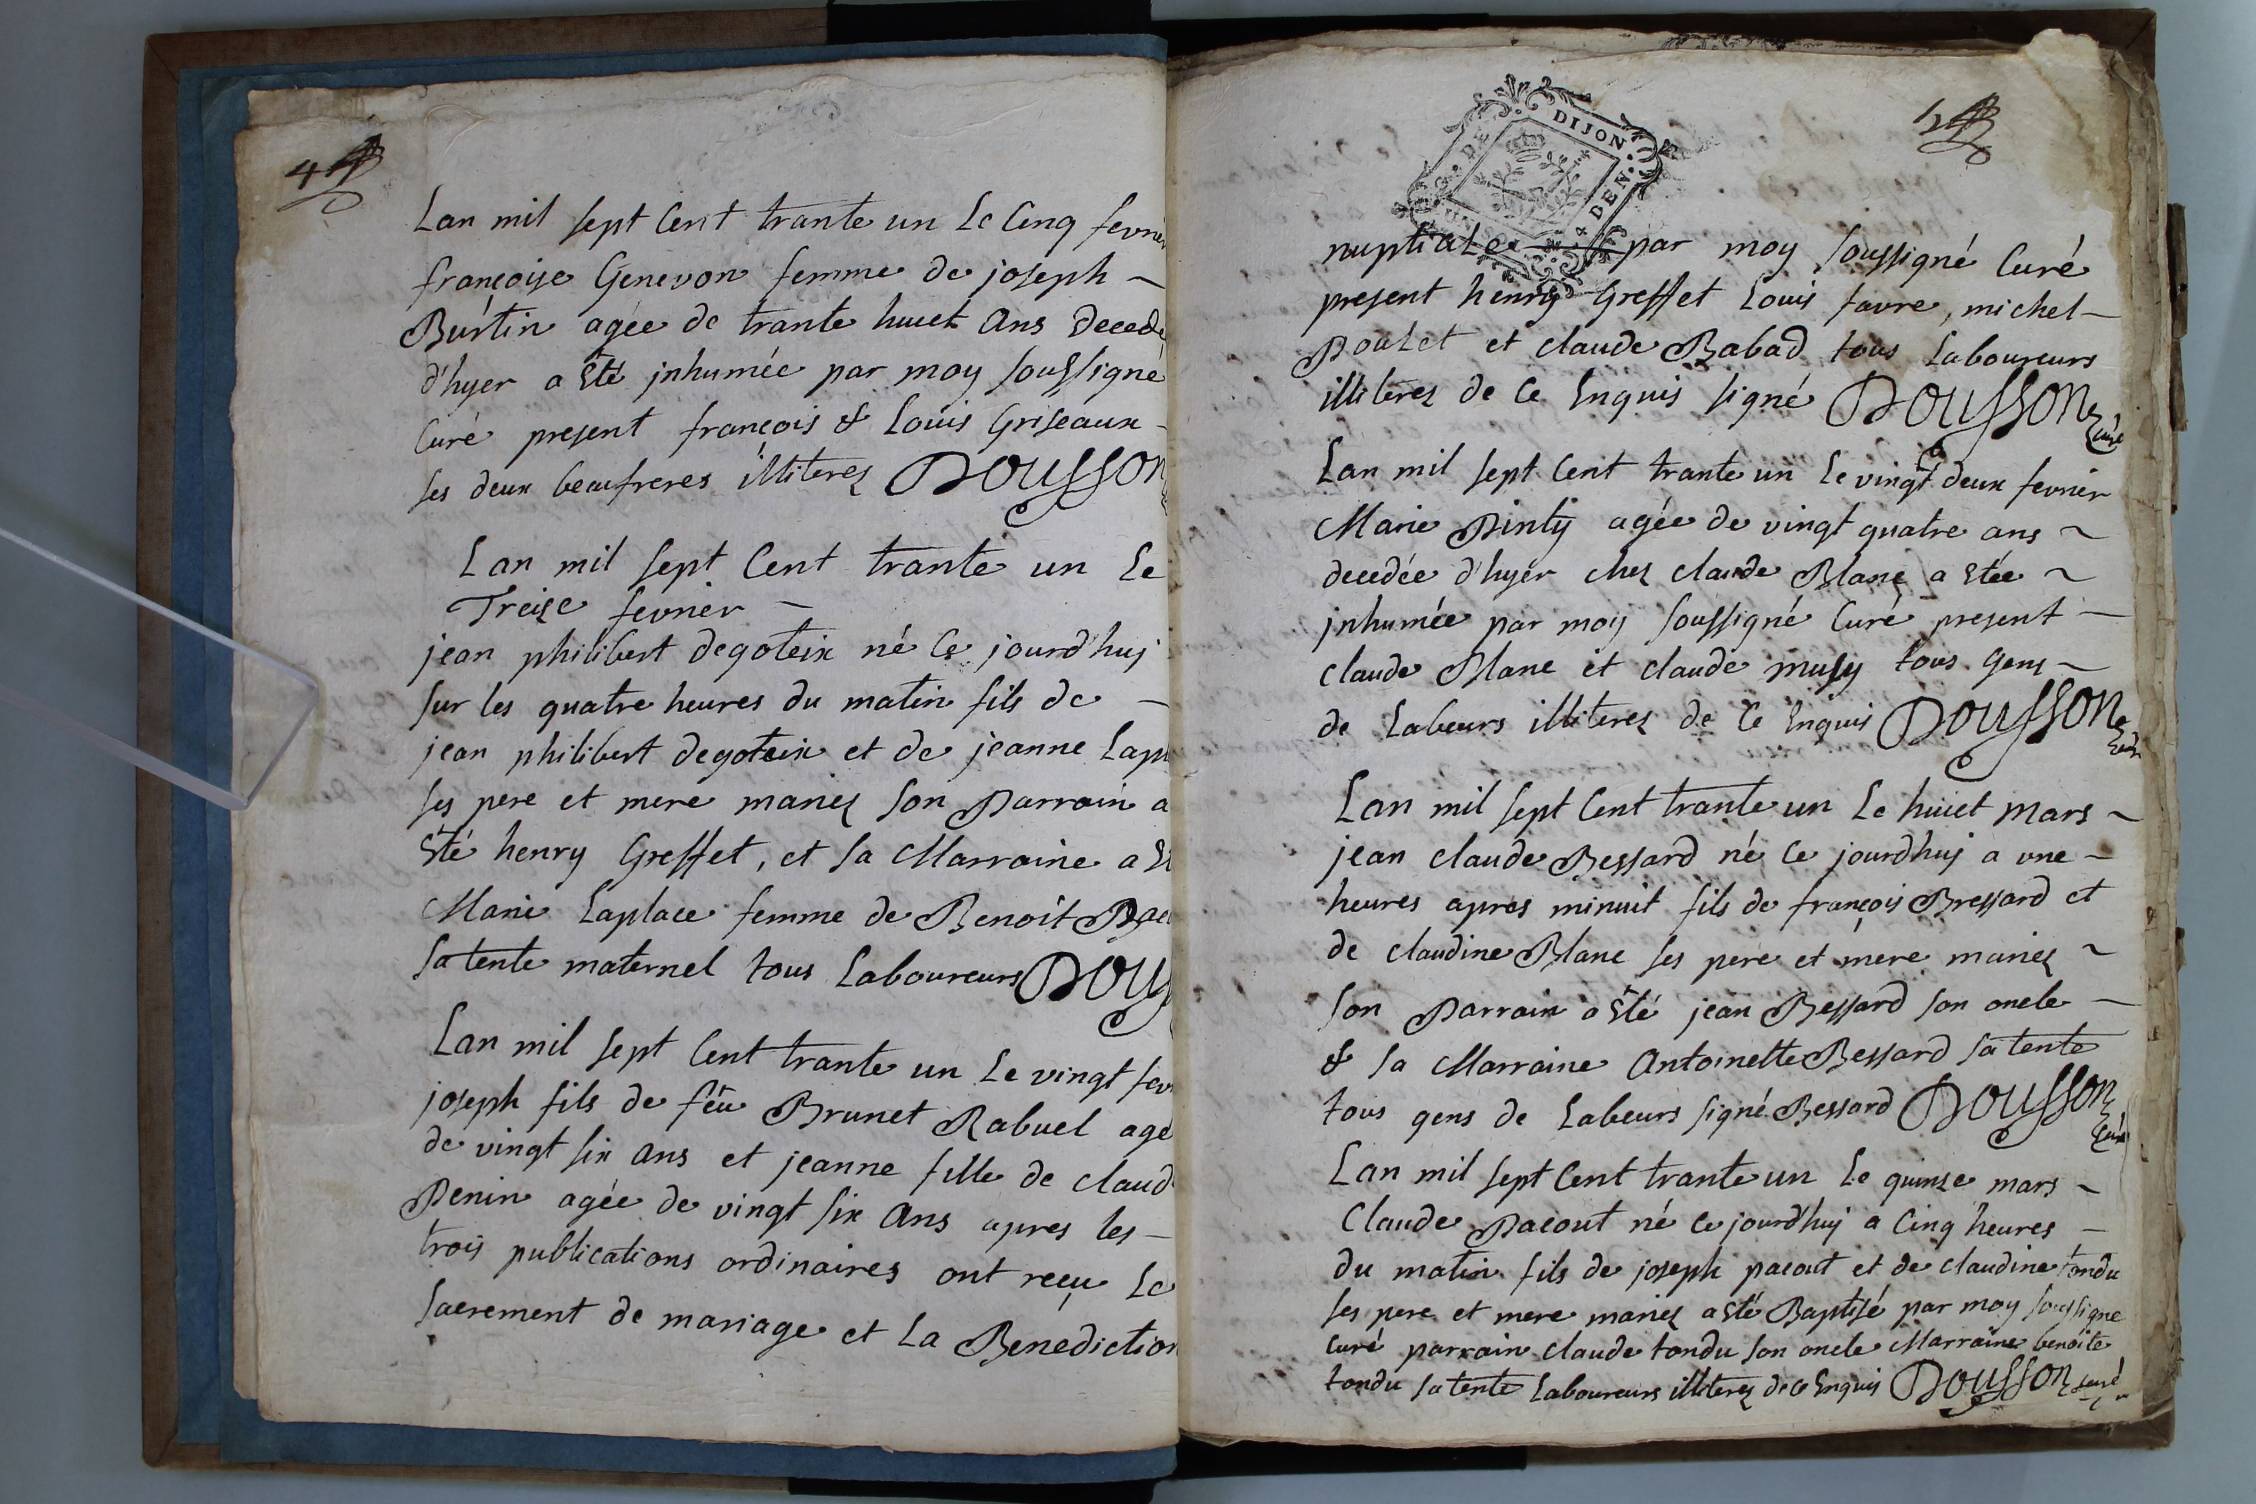 4
Lan mil sept Cent trante un Le Cinq fevrier
françoise Genevon femme de joseph
Burtin agée de trante huiet Ans Decedé
d'hyer a Eté jnhumée par moy soussigné
Curé present françois & Louis Griseaux
ses deux beaufreres illiterez Dousson
Lan mil sept Cent trante un Le
Treize fevrier
jean philibert degoteix né Ce jourd'huy
sur les quatre heures du matin fils de
jean philibert degoteix et de jeanne Lapl
ses pere et mere mariez son Parrain a
Eté henry Greffet, et sa Marraine a Et
Marie Laplace femme de Benoit Pac
sa tente maternel tous Laboureurs Douss
Lan mil sept Cent trante un Le vingt fevr
joseph fils de féu Brunet Rabuel agé
de vingt six ans et jeanne fille de claude
Penin agée de vingt six Ans apres les
trois publications ordinaires ont reçu Le
sacrement de mariage et La Benediction
DIJON
G. DE
4 DEN.
nuptiale par moy soussigné Curé
present henry Greffet Louis favre, michel
Poulet et claude Babad tous Laboureurs
illiterez de Ce Enquis signé Dousson curé
Lan mil sept Cent trante un Le vingt deux fevrier
Marie Pinty agée de vingt quatre ans
decedée d'hyer chez claude Blanc a Etée
jnhumée par moy soussigné Curé present
claude Blanc et claude musy tous Gens
de Labeurs illiterez de Ce Enquis Dousson curé
Lan mil sept Cent trante un Le huiet mars
jean claude Bessard né Ce jourd'huy a une
heures apres minuit fils de françois Bressard et
de claudine Blanc ses pere et mere mariez
son Parrain a Eté jean Bessard son oncle
& sa Marraine Antoinette Bessard sa tente
tous gens de Labeurs signé Bessard Dousson curé
Lan mil sept Cent trante un Le quinze mars
Claude Pacout né Ce jourd'huy a Cinq heures
du matin fils de joseph pacout et de claudine tondu
ses pere et mere mariez a Eté Baptisé par moy soussigné
curé parrain claude tondu son oncle Marraine benoite
tondu sa tente Laboureurs illiterez de Ce Enquis Dousson curé